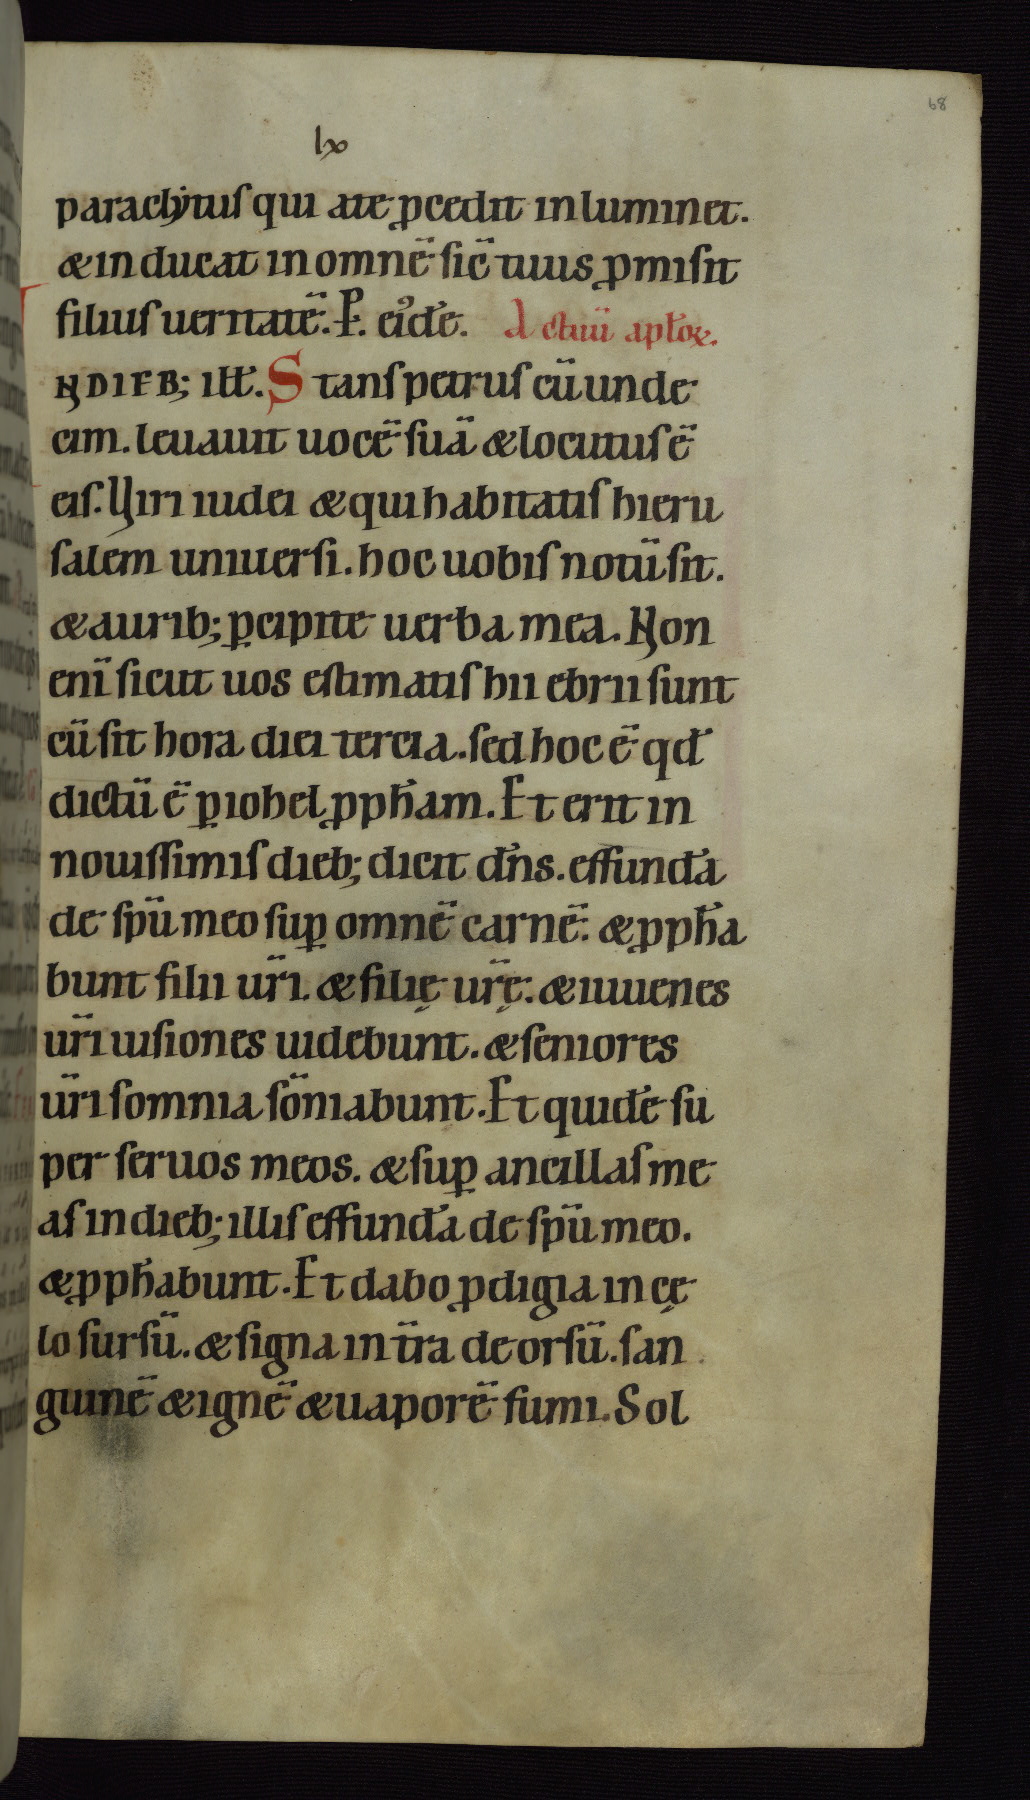 68
lx
paraclytus qui a te ꝓcedit inluminet.
& inducat in omnē sic̄ tuus ꝓmisit
filius ueritatē. P. eiđe. Actuū apl̄oꝝ.
N DIEB; ILL̄. Stans petrus cū unde
cim. leuauit uocē suā & locutus ē
eis. Viri iudei & qui habitatis hieru
salem uniuersi. hoc uobis notū sit.
& aurib; ꝑcipite uerba mea. Non
eni̅ sicut uos estimatis hii ebrii sunt
cū sit hora diei tercia. sed hoc ē qđ
dictū ē ꝑ iohel ꝓph̄am. Et erit in
nouissimis dieb; dicit dn̄s. effundā
de spū meo suꝑ omnē carnē. & ꝓph̄a
bunt filii ur̄i. & filię ur̄ę. & iuuenes
ur̄i uisiones uidebunt. & seniores
ur̄i somnia sōniabunt. Et quidē su
per seruos meos. & suꝑ ancillas me
as in dieb; illis effundā de spū meo.
& ꝓph̄abunt. Et dabo ꝓdigia in cę
lo sursū. & signa in t̄ra deorsū. san
guinē & ignē & uaporē fumi. Sol